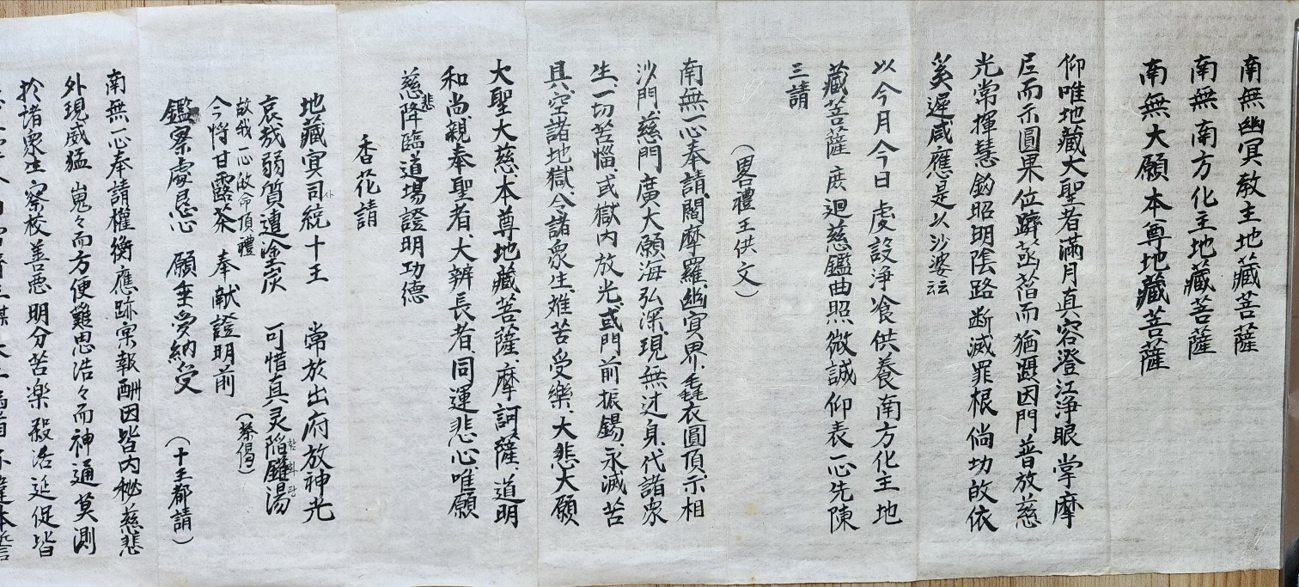 南無幽冥敎主地藏菩薩
南無南方化主地藏菩薩
南無大願本尊地藏菩薩
仰唯地藏大聖者滿月真容澄江淨眼掌摩
尼而示圓果位躋菡萏而猶躡因門普放慈
光常揮慧釰昭明陰路断滅罪根倘切㪯依
奚遲咸應是以沙婆云
以今月今日虔設淨飡供養南方化主地
藏菩薩庶迴慈鑑曲照微誠仰表一心先陳
三請
(畧禮王供文)
南無一心奉請閻摩羅幽冥界毳衣圓頂示相
沙門慈門廣大願海弘深現無边身代諸衆
生一切苦惱或獄內放光或門前振錫永滅苦
具空諸地獄令諸衆生離苦受樂大悲大願
大聖大慈本尊地藏菩薩摩訶薩道明
和尚親奉聖者大辨長者同運悲心唯願
慈悲降臨道場證明功德
香花請
地藏冥司統十王 常放出府放神光
哀㢤弱質遭塗炭 可惜真灵陷鑊湯
故我一心㪯命頂禮
今將甘露茶 奉献證明前
(茶偈)
鑑察虔恳心 願垂受納受
(十王都請)
南無一心奉請權衡應跡宲報酬因皆內秘慈悲
外現威猛嵬々而方便難思浩々而神通莫測
於諸衆生察校善悪明分苦楽殺活延促皆